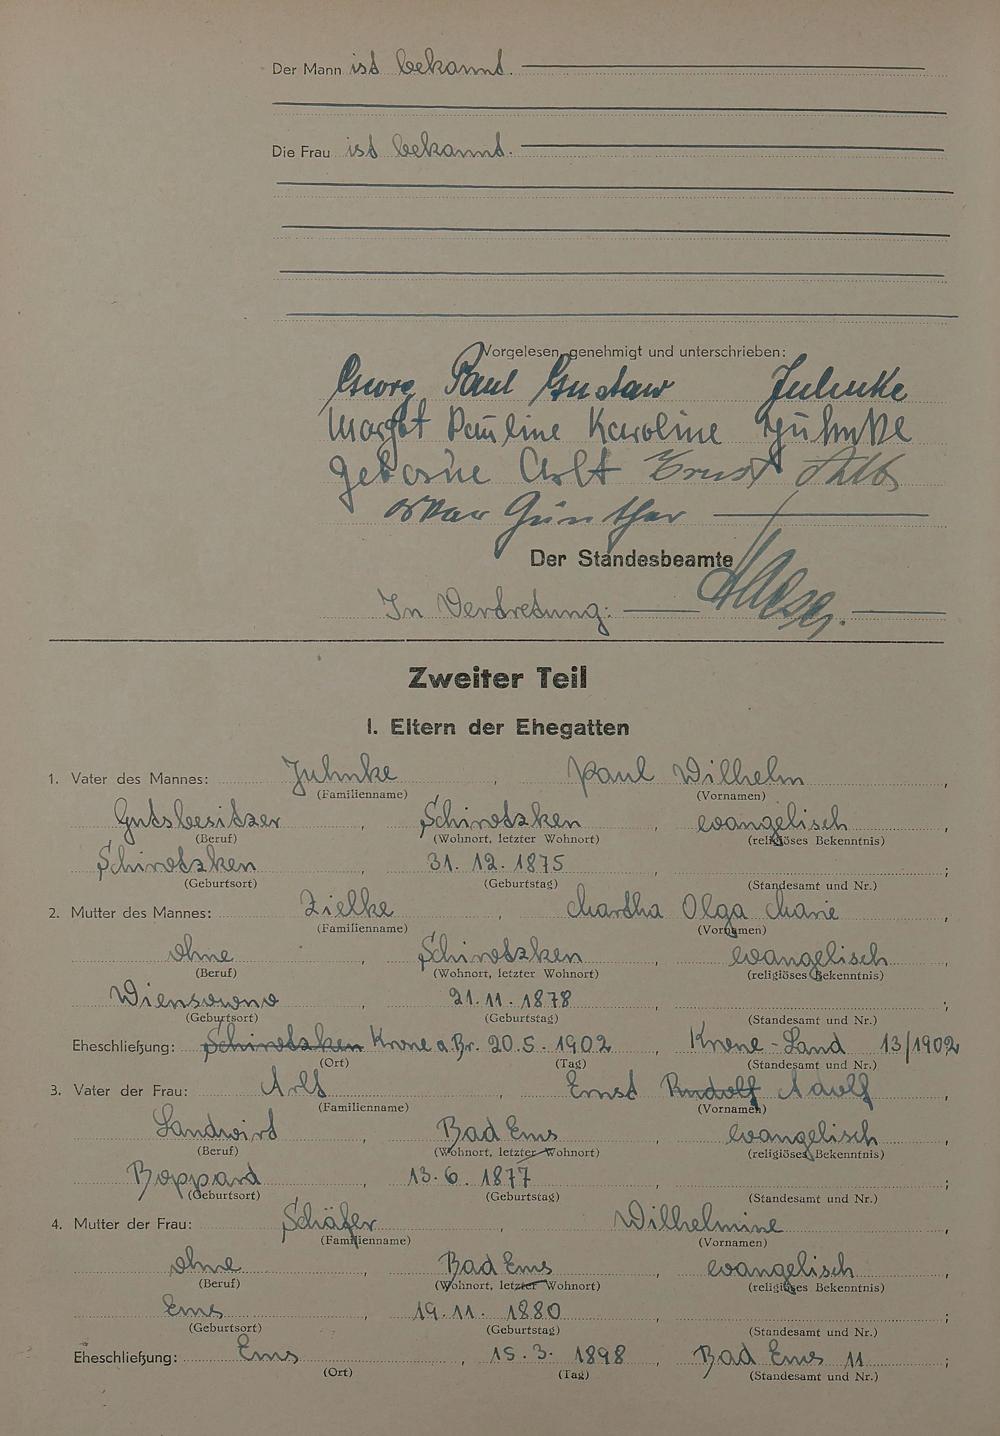 Der Mann ist bekannt.
Die Frau ist bekannt.
Vorgelesen, genehmigt und unterschrieben:
Georg Paul Gustaw Juhnke
Margot Pauline Karoline Juhnke
geborene Arlt Ernst
Oskar Günther
Der Standesbeamte
In Vertretung:
Zweiter Teil
I. Eltern der Ehegatten
1. Vater des Mannes: Juhnke, Paul Wilhelm,
(Familienname) (Vornamen)
Gutsbesitzer, Schirotzken, evangelisch,
(Beruf) (Wohnort, letzter Wohnort) (religiöses Bekenntnis)
Schirotzken, 31. 12. 1875, ;
(Geburtsort) (Geburtstag) (Standesamt und Nr.)
2. Mutter des Mannes: Zielke, Martha Olga Marie,
(Familienname) (Vornamen)
ohne, Schirotzken, evangelisch,
(Beruf) (Wohnort, letzter Wohnort) (religiöses Bekenntnis)
Wiensowno, 21. 11. 1878, ;
(Geburtsort) (Geburtstag) (Standesamt und Nr.)
Eheschließung: Schirotzken Krone a. Br. 20. 5. 1902, Krone-Land 13/1902
(Ort) (Tag) (Standesamt und Nr.)
3. Vater der Frau: Arlt, Ernst Rudolf Adolf,
(Familienname) (Vornamen)
Landwirt, Bad Ems, evangelisch,
(Beruf) (Wohnort, letzter Wohnort) (religiöses Bekenntnis)
Boppard, 13. 6. 1877, ;
(Geburtsort) (Geburtstag) (Standesamt und Nr.)
4. Mutter der Frau: Schäfer, Wilhelmine,
(Familienname) (Vornamen)
ohne, Bad Ems, evangelisch,
(Beruf) (Wohnort, letzter Wohnort) (religiöses Bekenntnis)
Ems, 19. 11. 1880, ;
(Geburtsort) (Geburtstag) (Standesamt und Nr.)
Eheschließung: Ems, 15. 3. 1898, Bad Ems 11;
(Ort) (Tag) (Standesamt und Nr.)